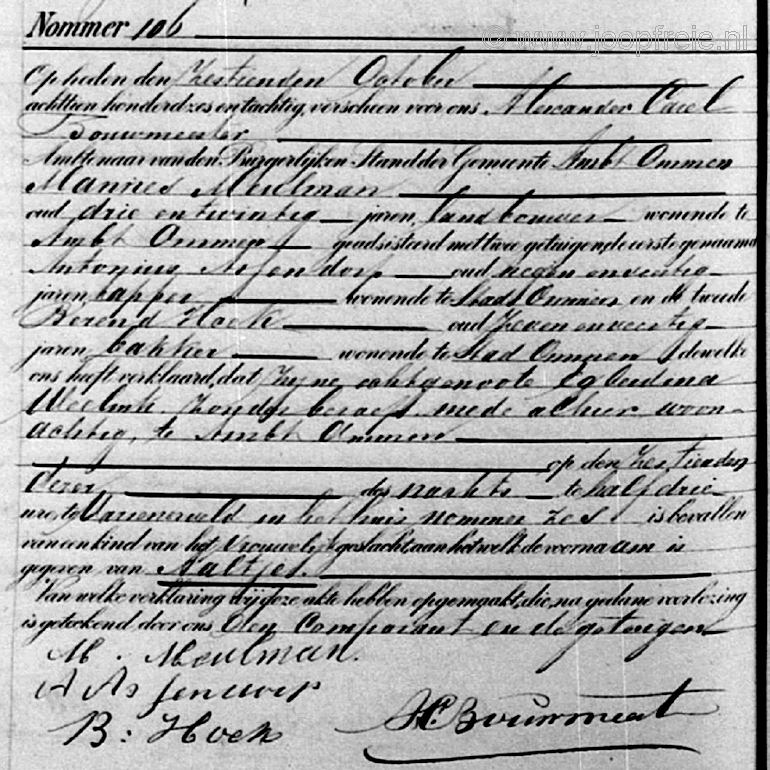 © www.joopfreie.nl
Nommer 106
Op heden den Zestienden October
achttien honderd zes en tachtig, verscheen voor ons Alexander Carel
Bouwmeester
Ambtenaar van den Burgerlijken Stand der Gemeente Ambt Ommen
Mannes Meulman
oud drie en twintig jaren, landbouwer wonende te
Ambt Ommen geadsisteerd met twee getuigen, de eerste genaamd
Antonius oud negen en veertig
jaren, tapper wonende te Stad Ommen en de tweede
Berend Hoek oud Zeven en veertig
jaren, bakker wonende te Stad Ommen, dewelke
ons heeft verklaard, dat Zijne echtgenoote Egberdina
Zonder beroep, mede alhier woon-
achtig, te Ambt Ommen
op den Zestienden
dezer, des nachts te half drie
ure, te Varsenerveld in het huis nommer Zes is bevallen
van een kind van het Vrouwelijk geslacht, aan hetwelk de voornaam is
gegeven van Aaltje.
Van welke verklaring wij deze akte hebben opgemaakt, die, na gedane voorlezing
is geteekend door ons den Comparant en de getuigen
M. Meulman.
B: Hoek
Bouwmeest